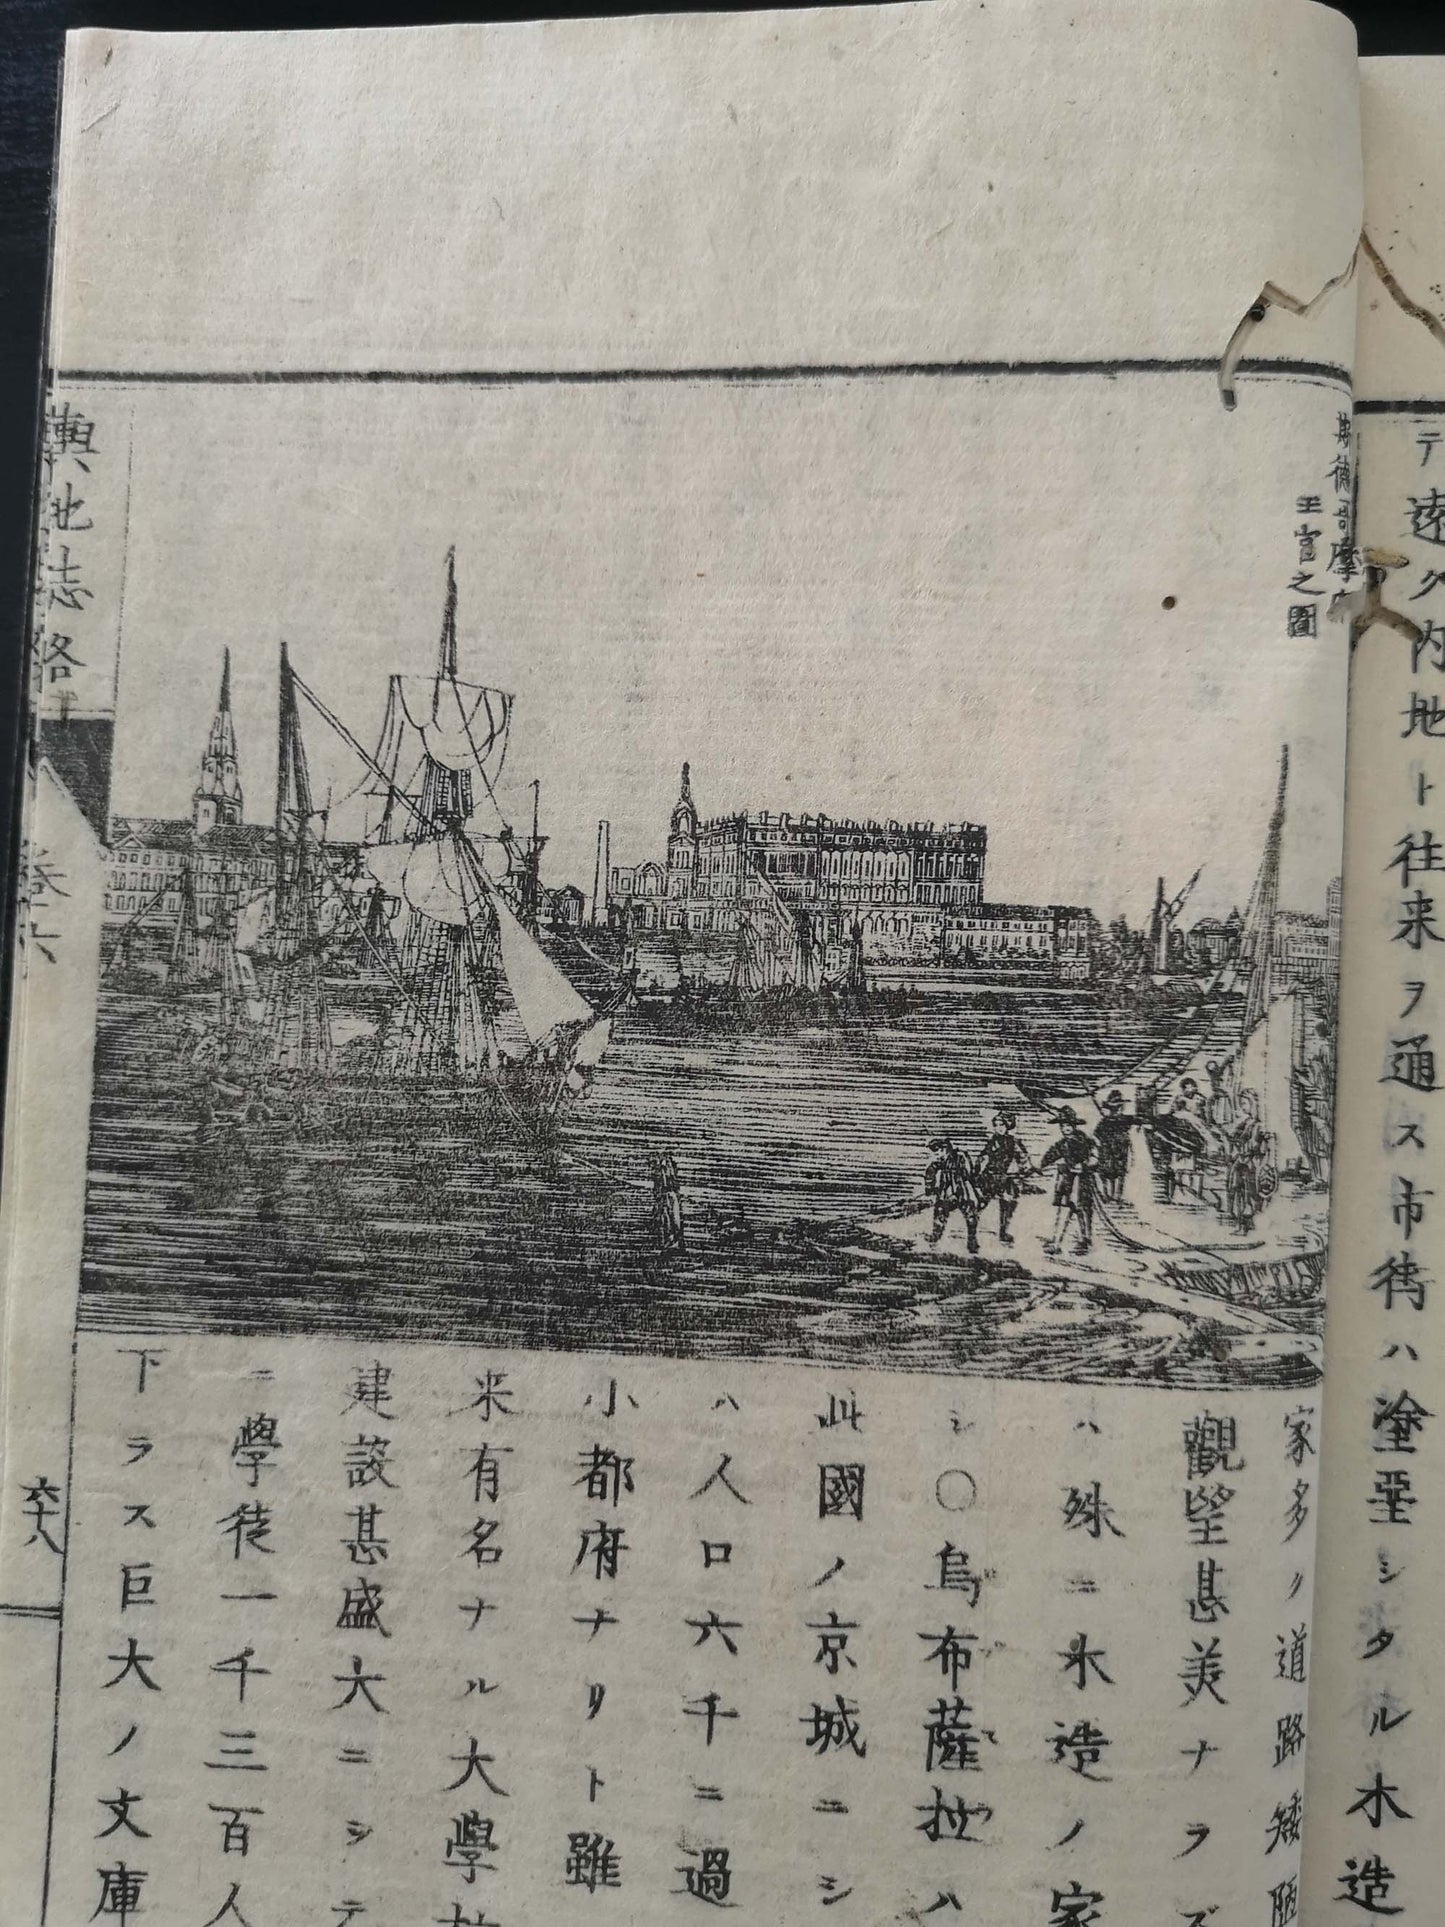 テ遠ク内地ト往来ヲ通ス市街ハ塗堊シタル木造
斯德哥摩府
王宮之圖
家多ク道路矮陋
觀望甚美ナラズ
ハ殊ニ木造ノ家
シ〇烏布薩拉ハ
此國ノ京城ニシ
ハ人口六千ニ過
小都府ナリト雖
来有名ナル大學
建設甚盛大ニシテ
ニ學徒一千三百人
下ラス巨大ノ文庫
輿地誌略
卷六
六十八